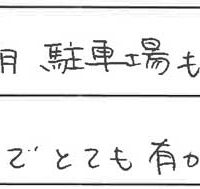 月 駐車場も
でとても有か